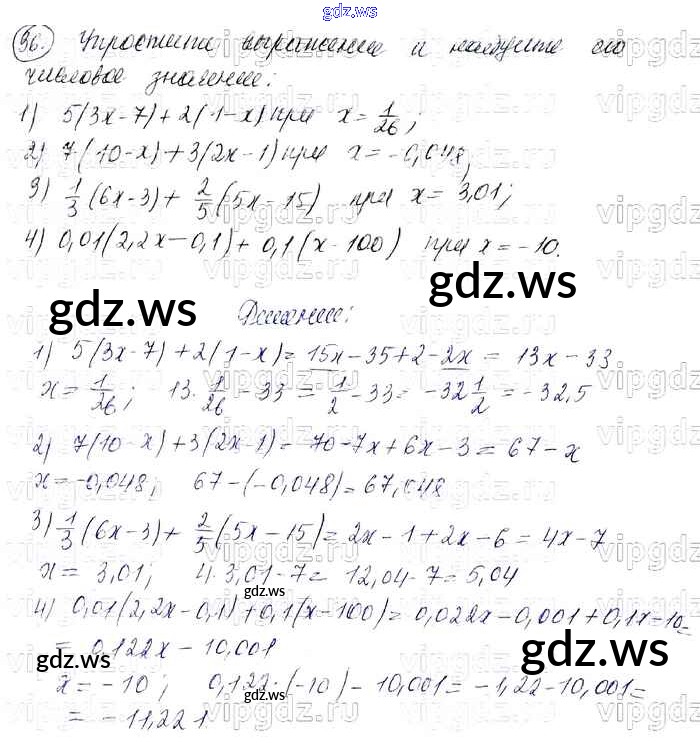 gdz.ws
36. Упростите выражение и найдите его
числовое значение:
1) 5(3x-7)+2(1-x) при x=1/26;
2) 7(10-x)+3(2x-1) при x=-0,048;
3) 1/3(6x-3)+2/5(5x-15) при x=3,01;
4) 0,01(2,2x-0,1)+0,1(x-100) при x=-10.
gdz.ws gdz.ws
Решение:
1) 5(3x-7)+2(1-x)=15x-35+2-2x=13x-33
x=1/26; 13·1/26-33=1/2-33=-32 1/2=-32,5
2) 7(10-x)+3(2x-1)=70-7x+6x-3=67-x
x=-0,048; 67-(-0,048)=67,048
3) 1/3(6x-3)+2/5(5x-15)=2x-1+2x-6=4x-7
x=3,01; 4·3,01-7=12,04-7=5,04
gdz.ws
4) 0,01(2,2x-0,1)+0,1(x-100)=0,022x-0,001+0,1x-10=
=0,122x-10,001
gdz.ws gdz.ws
x=-10; 0,122·(-10)-10,001=-1,22-10,001=
=-11,221
gdz.ws